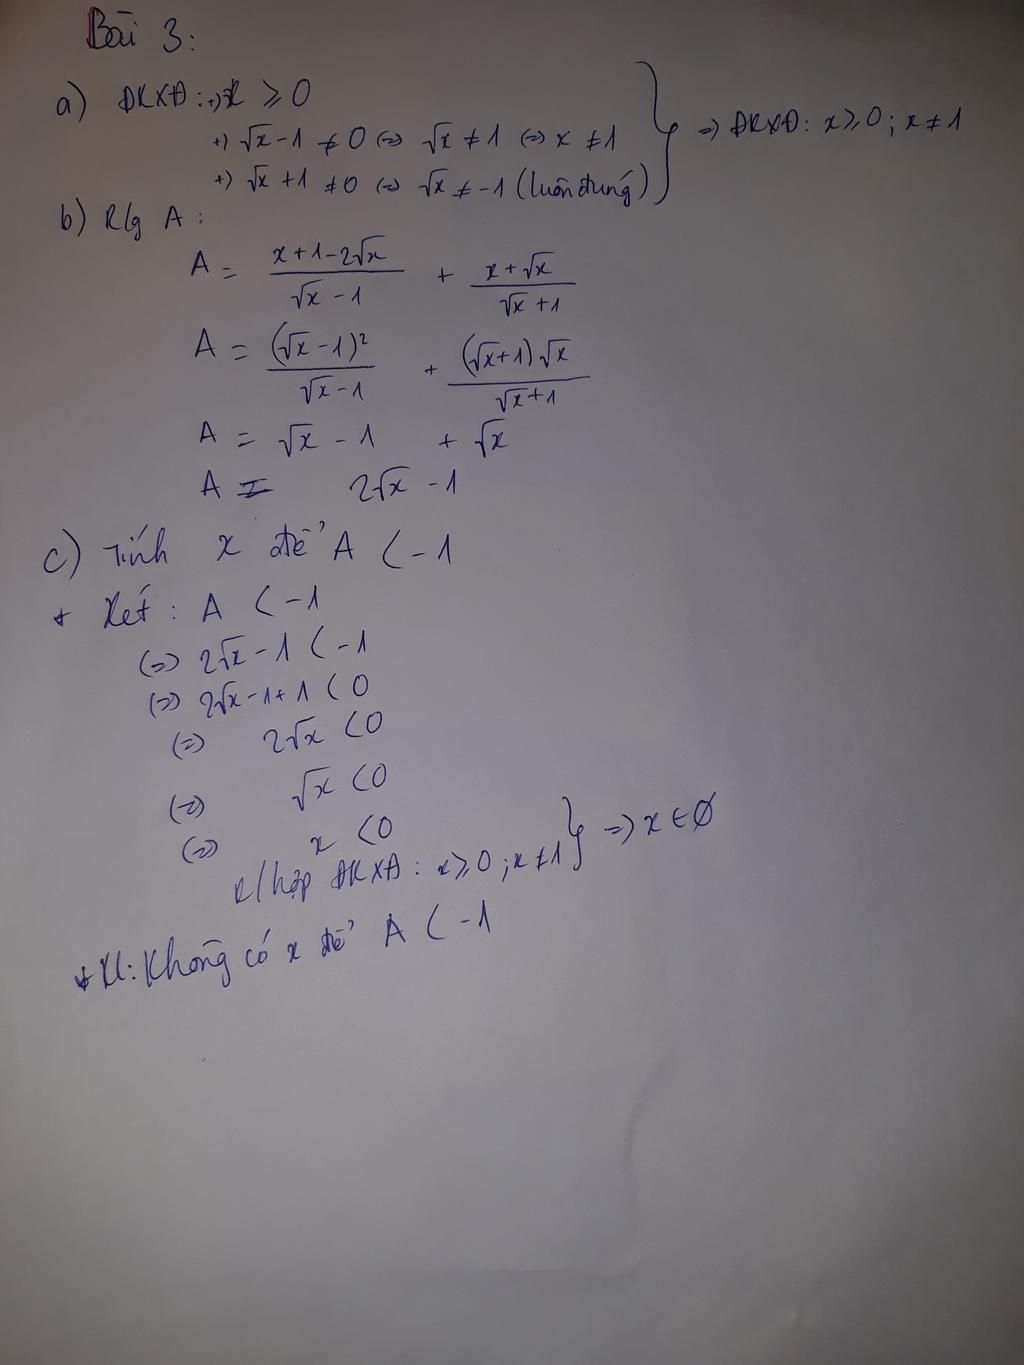 Bài 3:
a) ĐKXĐ: +) x ≥ 0
+) √x - 1 ≠ 0 (=) √x ≠ 1 (=) x ≠ 1
+) √x + 1 ≠ 0 (=) √x ≠ -1 (luôn đúng)
} => ĐKXĐ: x ≥ 0; x ≠ 1
b) R/g A:
A = (x + 1 - 2√x)/(√x - 1) + (x + √x)/(√x + 1)
A = (√x - 1)²/(√x - 1) + (√x + 1)√x/(√x + 1)
A = √x - 1 + √x
A = 2√x - 1
c) Tính x để A < -1
* Xét: A < -1
(=) 2√x - 1 < -1
(=) 2√x - 1 + 1 < 0
(=) 2√x < 0
(=) √x < 0
(=) x < 0
K/hợp ĐKXĐ: x ≥ 0; x ≠ 1 } => x ∈ Ø
* KL: Không có x để A < -1